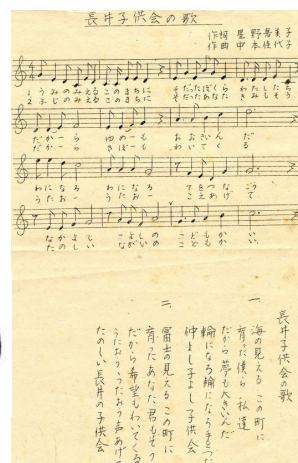 長井子供会の歌
作詞 星野 美子
作曲 中本佳代子
1 うみのみえる このまちに そだったぼくら わたしたち
2 ふじのみえる このまちに そだったあなた きみもそう
だかーら ゆめーも おおきいん だ
だかーら きぼーも わいてく る
わになろ わになろ てをつな ごう
うたおー うたおー こえあげ て
なかよし こよしの こどもか い
たのしい ながいの こどもか い
長井子供会の歌
一、海の見える この町に
育った僕ら 私達
だから夢も大きいんだ
輪になろ輪になろ手をつ
仲よし子よし 子供会
二、富士の見える この町に
育ったあなた 君もそう
だから希望もわいてくる
うたおううたおう声あげ
たのしい長井の子供会